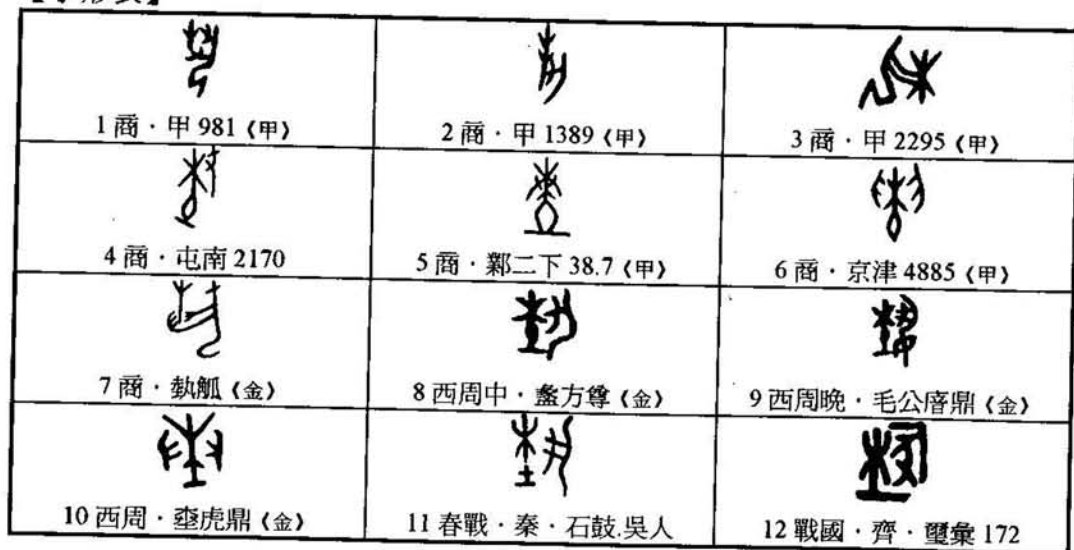 1 商．甲 981《甲》
2 商．甲 1389《甲》
3 商．甲 2295《甲》
4 商．屯南 2170
5 商．鄴二下 38.7《甲》
6 商．京津 4885《甲》
7 商．埶觚《金》
8 西周中．盠方尊《金》
9 西周晚．毛公厝鼎《金》
10 西周．埶虎鼎《金》
11 春戰．秦．石鼓.吳人
12 戰國．齊．璽彙 172